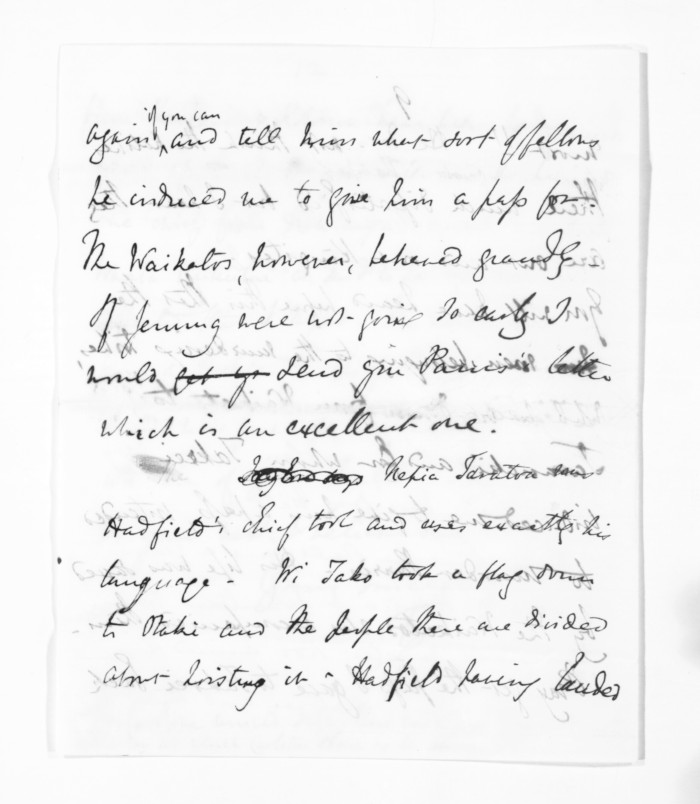 if you can
again, and tell him what sort of fellows
he induced me to give him a pass for.
The Waikatos, however, behaved grandly
If Jenning were not going so early I
would get yr send you Parris's letter
which is an excellent one.
Nepia Taratoa was
Hadfield's chief tool and uses exactly his
language - Wi Tako took a flag down
to Otaki and the people there are divided
about hoisting it - Hadfield having landed